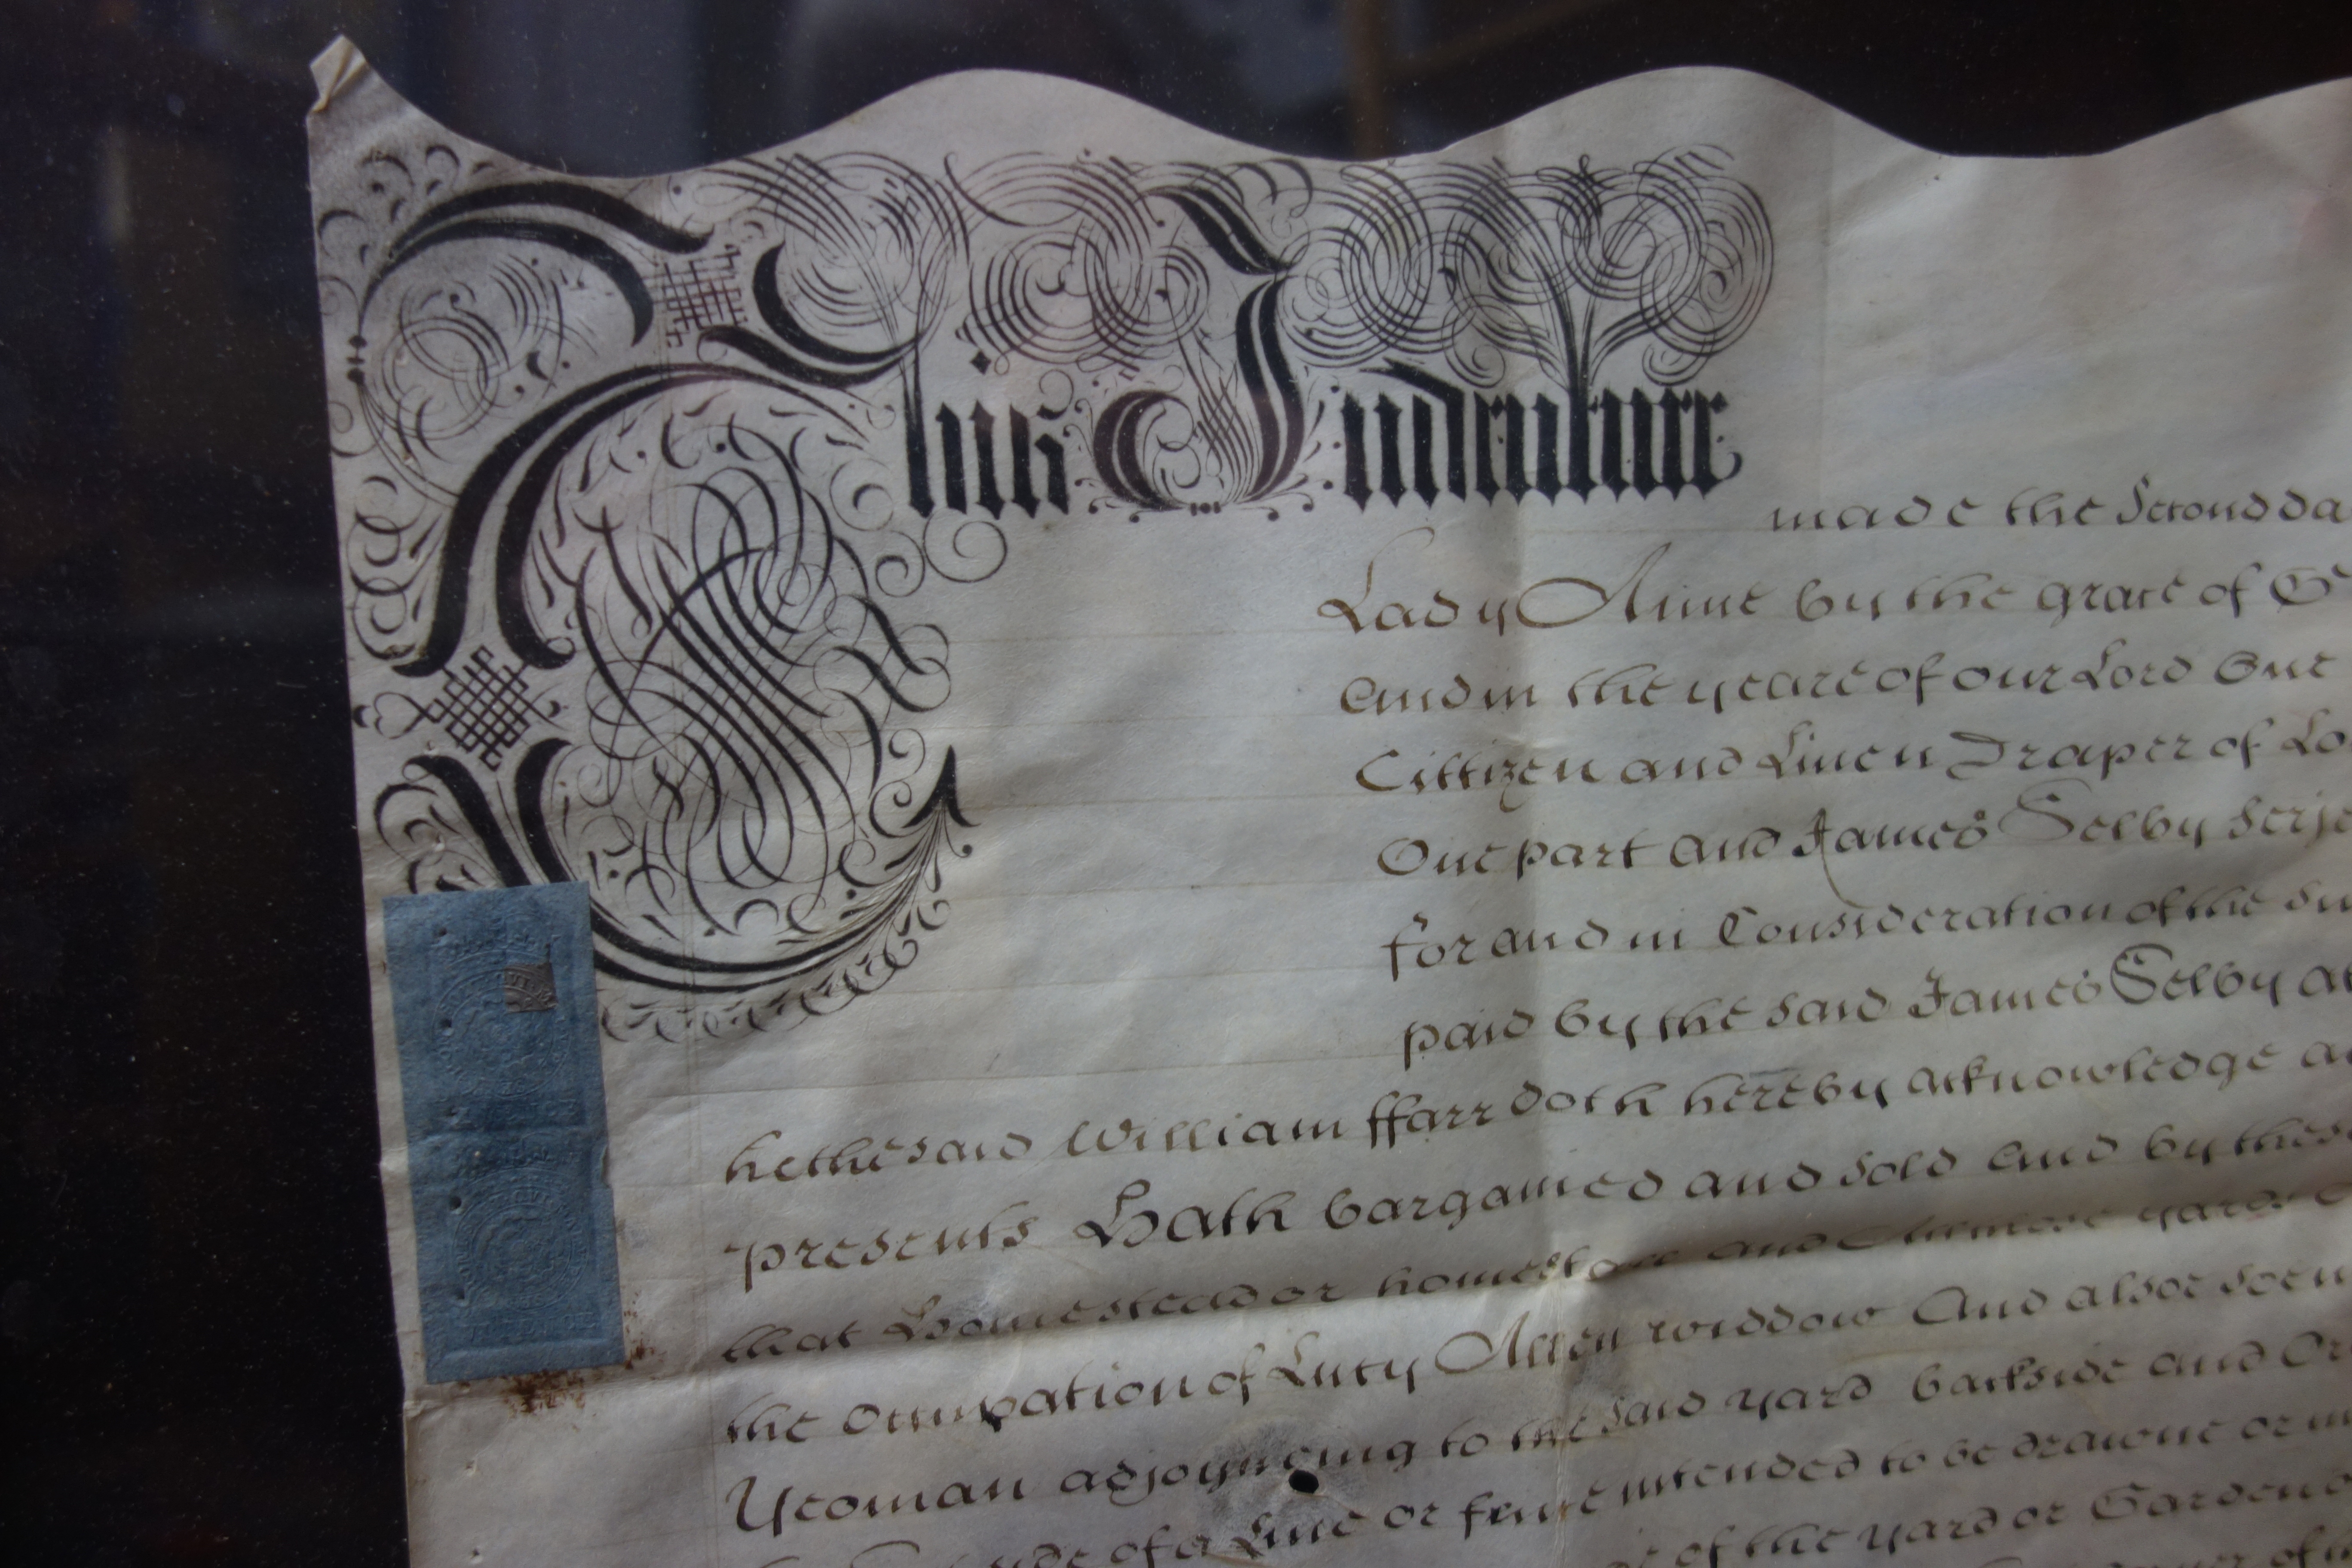 This Indenture
made the Second da
Lady Anne by the grace of G
And in the yeare of our Lord One
Cittizen and Linen Draper of Lo
One part and James Selby Serje
for and in Consideration of the su
paid by the said James Selby at
he the said William ffarr doth hereby acknowledge a
presents Hath bargained and sold And by these
that Homestead or homestall and yard
the Occupation of Lucy Allen widdow And alsoe
Yeoman adjoyneing to the said yard backside and Or
side of a Line or fence intended to be drawne or m
of the yard or Garden